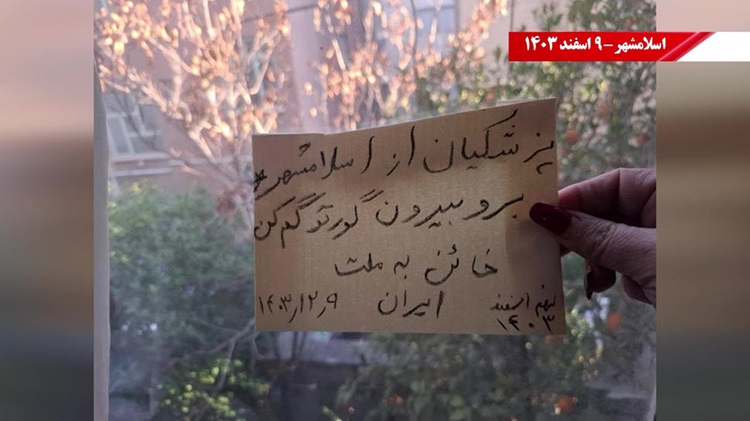 اسلامشهر - ۹ اسفند ۱۴۰۳
پزشکیان از اسلامشهر
برو بیرون گورتو گم کن
خائن به ملت
ایران
نهم اسفند
۱۴۰۳
۱۴۰۳/۱۲/۹